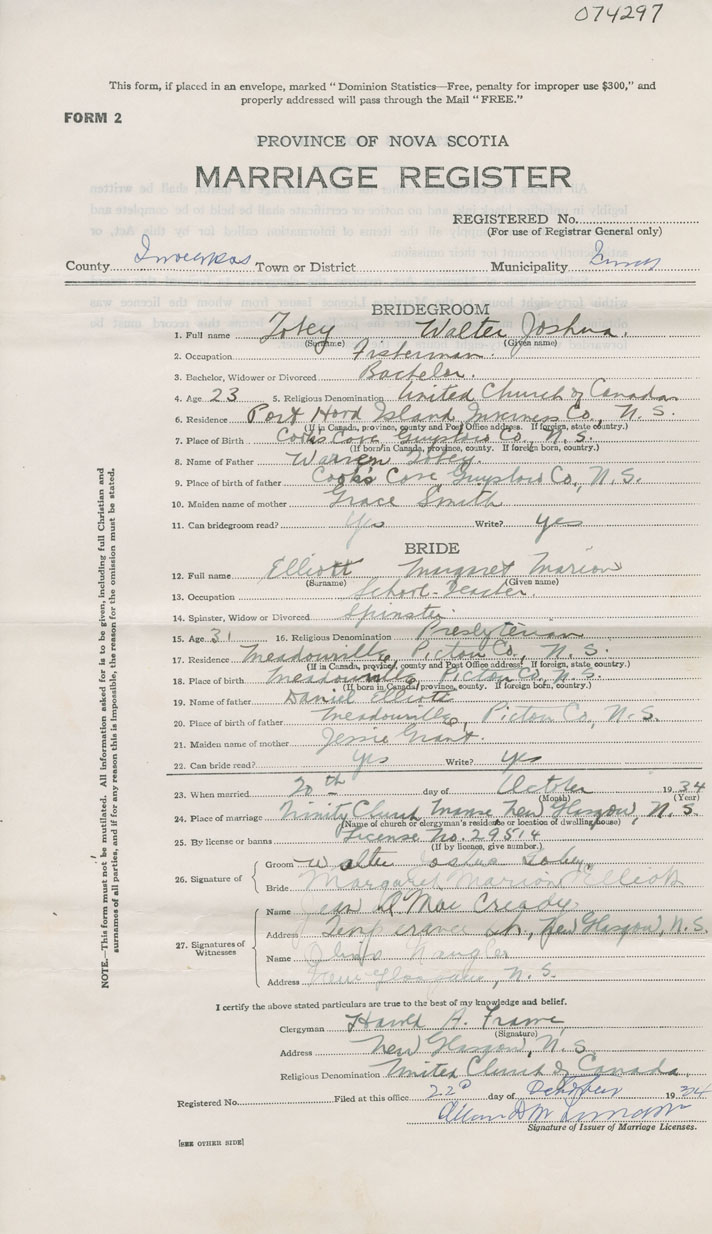 074297
This form, if placed in an envelope, marked "Dominion Statistics—Free, penalty for improper use $300," and
properly addressed will pass through the Mail "FREE."
FORM 2
PROVINCE OF NOVA SCOTIA
MARRIAGE REGISTER
REGISTERED No.
(For use of Registrar General only)
County Town or District Municipality
BRIDEGROOM
1. Full name Tobey Walter Joshua.
(Surname) (Given name)
2. Occupation Fisherman.
3. Bachelor, Widower or Divorced Bachelor.
4. Age 23 5. Religious Denomination United Church of Canada
6. Residence Port Hood Island, Inverness Co., N. S.
(If in Canada, province, county and Post Office address. If foreign, state country.)
7. Place of Birth Cooks Cove Guysboro Co., N. S.
(If born in Canada, province, county. If foreign born, country.)
8. Name of Father Warren Tobey.
9. Place of birth of father Cooks Cove Guysboro Co., N. S.
10. Maiden name of mother Grace Smith
11. Can bridegroom read? Yes Write? yes
BRIDE
12. Full name Elliott Margaret Marion
(Surname) (Given name)
13. Occupation School-Teacher.
14. Spinster, Widow or Divorced Spinster.
15. Age 31 16. Religious Denomination Presbyterian
17. Residence Meadowville, Pictou Co., N. S.
(If in Canada, province, county and Post Office address. If foreign, state country.)
18. Place of birth Meadowville, Pictou Co., N. S.
(If born in Canada, province, county. If foreign born, country.)
19. Name of father Daniel Elliott
20. Place of birth of father Meadowville, Pictou Co., N. S.
21. Maiden name of mother Jessie Grant.
22. Can bride read? Yes Write? Yes
23. When married 20th day of October 1934
(Month) (Year)
24. Place of marriage Trinity Church Manse New Glasgow, N. S.
(Name of church or clergyman's residence or location of dwelling house)
25. By license or banns License No. 29514
(If by licence, give number.)
26. Signature of
Groom Walter Joshua Tobey.
Bride Margaret Marion Elliott
27. Signatures of Witnesses
Name Jean
Address Temperance St., New Glasgow, N. S.
Name
Address New Glasgow, N. S.
I certify the above stated particulars are true to the best of my knowledge and belief.
Clergyman Harold A.
(Signature)
Address New Glasgow, N. S.
Religious Denomination United Church of Canada.
Registered No. Filed at this office 22 day of October 1934
Signature of Issuer of Marriage Licenses.
[SEE OTHER SIDE]
NOTE.—This form must not be mutilated. All information asked for is to be given, including full Christian and
surnames of all parties, and if for any reason this is impossible, the reason for the omission must be stated.